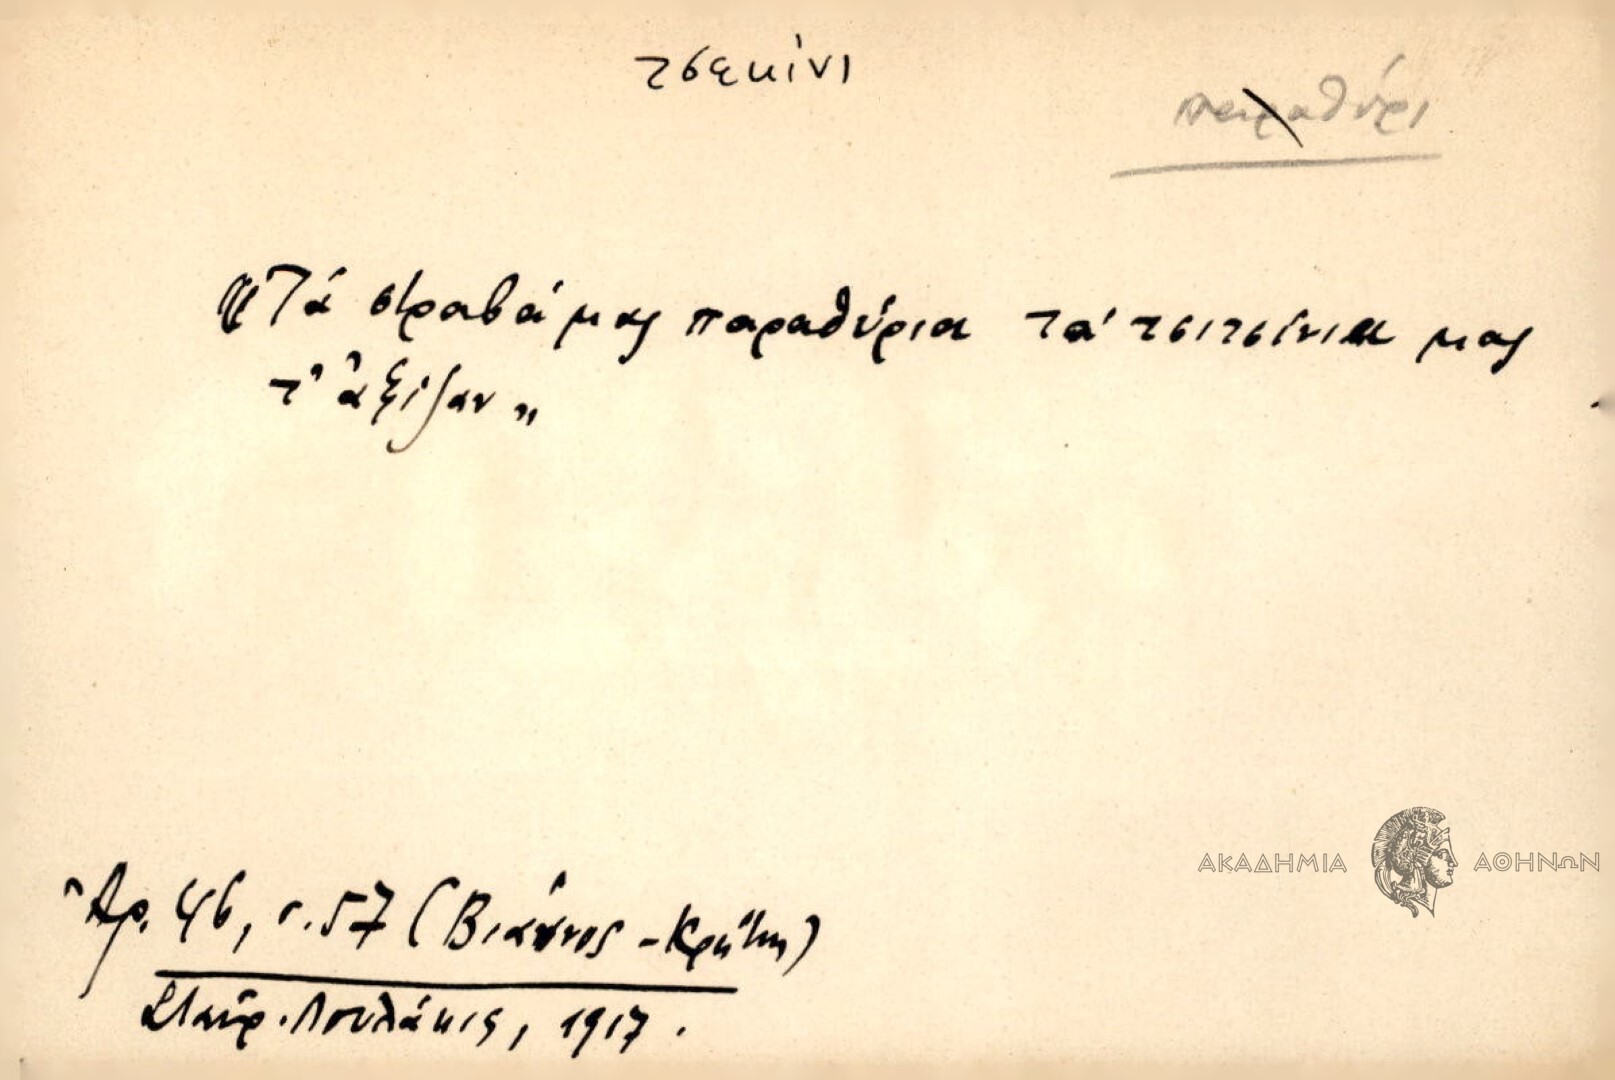 τσεκίνι
παραθύρι
“Τά στραβά μας παραθύρια τά τσιτσίνια μας
τ' ἀξίζαν „
Ἀρ. 46, σ. 57 (Βιάννος - Κρήτη)
Σταῦρ. Λουλάκις, 1917.
ΑΚΑΔΗΜΙΑ ΑΘΗΝΩΝ